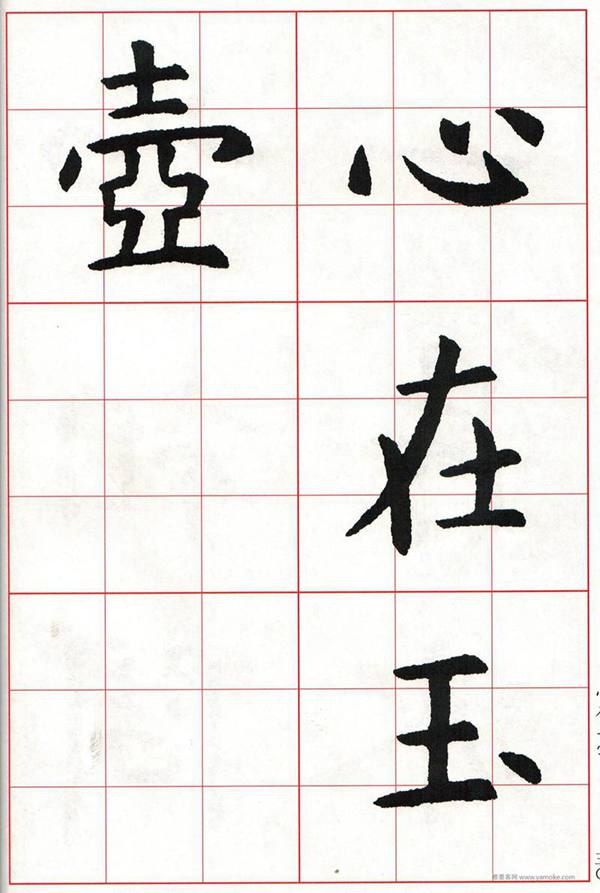 心在玉
壺
雅墨客网 www.yamoke.com